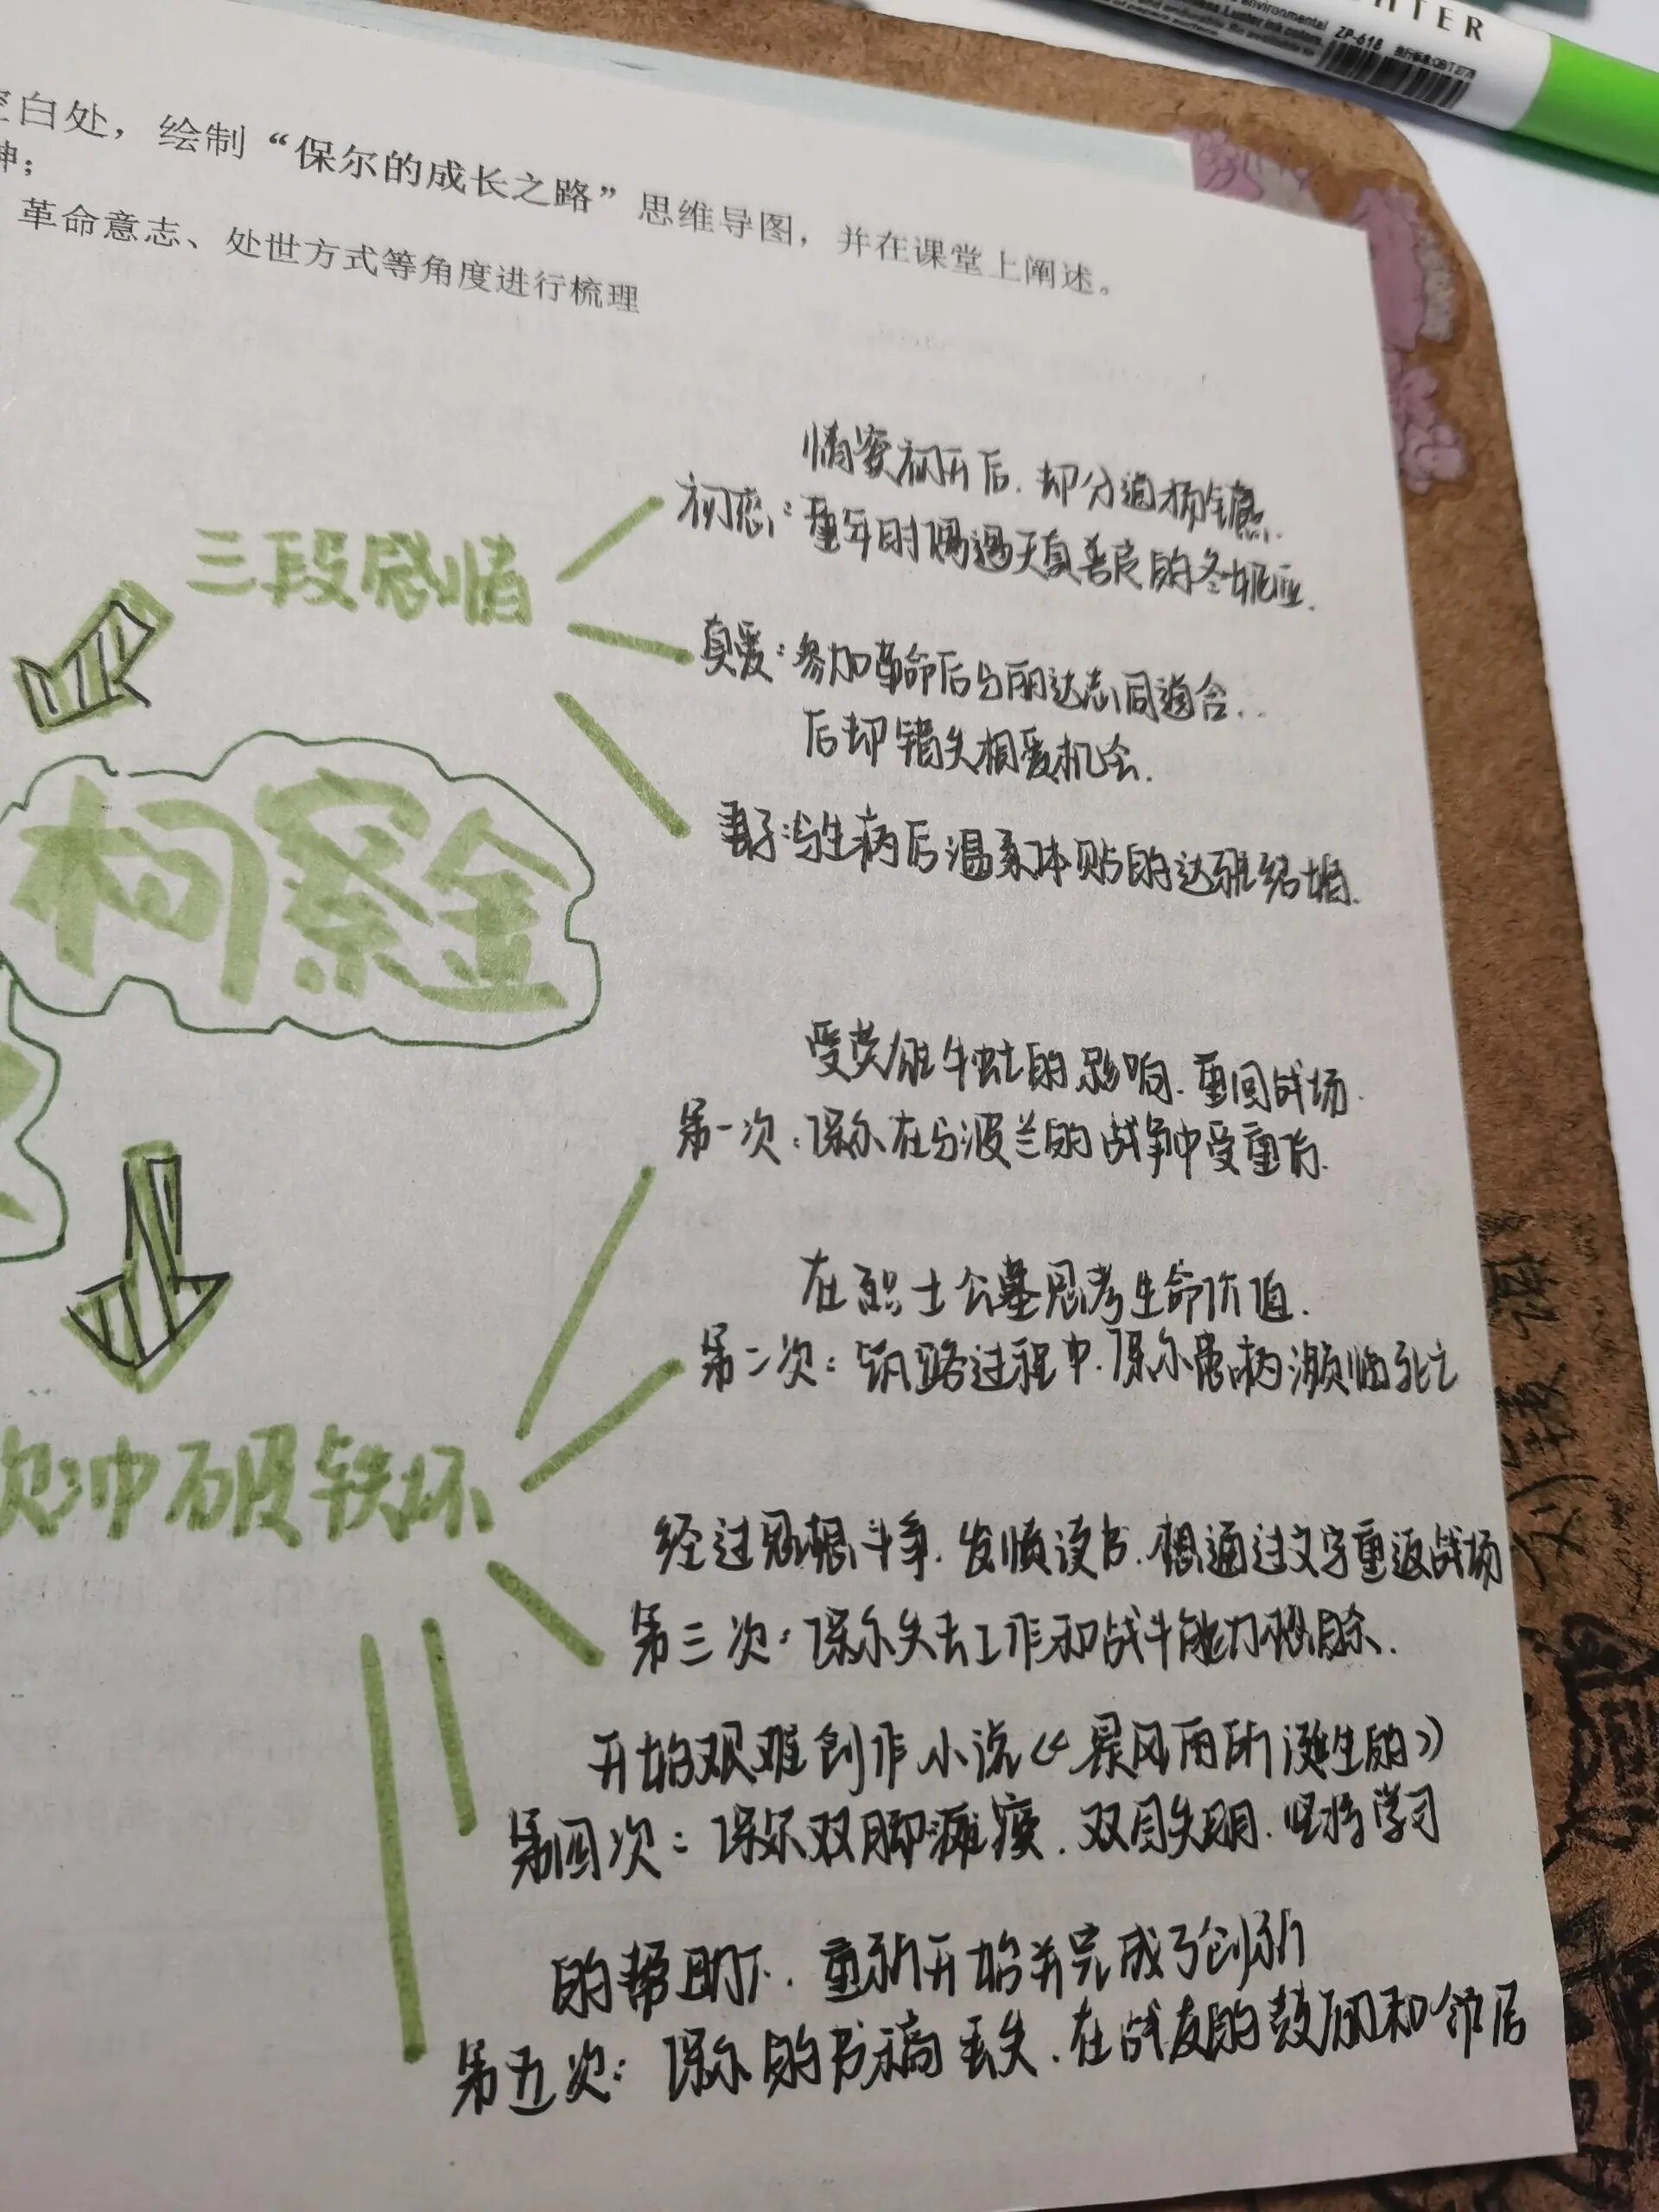 HTER
environmental
ZP-618
空白处，绘制“保尔的成长之路”思维导图，并在课堂上阐述。
神；
革命意志、处世方式等角度进行梳理
三段感情
情窦初开后，却分道扬镳.
初恋：童年时偶遇天真善良的冬妮亚.
真爱：参加革命后与丽达志同道合.
后却错失相爱机会.
妻子：与生病后温柔体贴的达雅结婚.
柯察金
受英雄牛虻的影响.重回战场.
第一次：保尔在与波兰的战争中受重伤.
在烈士公墓思考生命价值.
第二次：筑路过程中.保尔患病濒临死亡
次冲破铁环
经过思想斗争.发愤读书.想通过文字重返战场
第三次：保尔失去工作和战斗能力
开始艰难创作小说《暴风雨所诞生的》
第四次：保尔双脚瘫痪.双目失明.坚持学习
的帮助下.重新开始并完成了创新
第五次：保尔的书稿丢失.在战友的鼓励和邻居